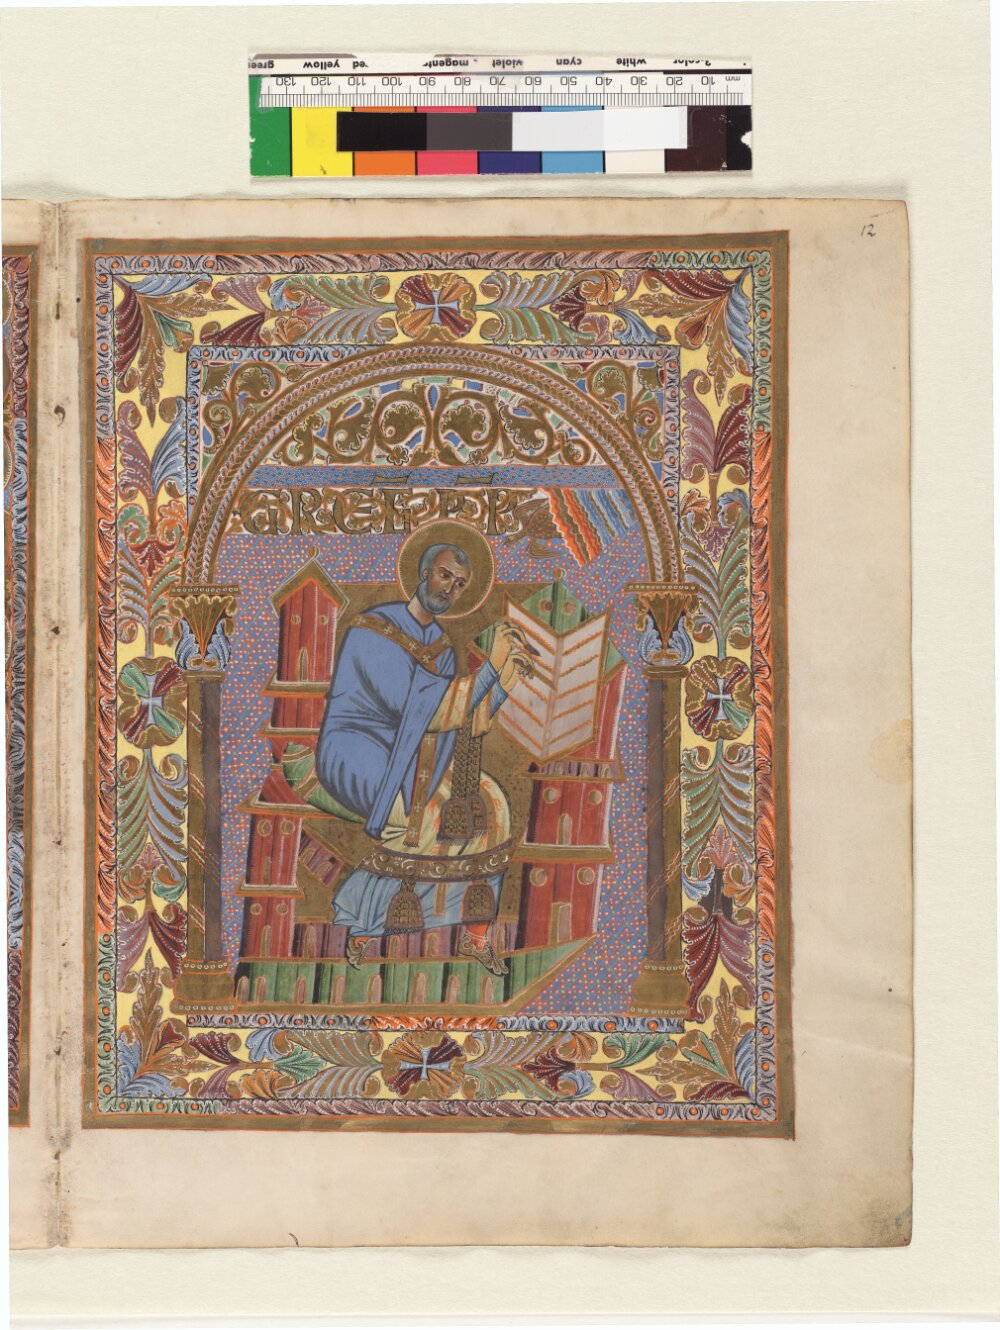 green yellow red magenta violet cyan white 3-color
130 120 110 100 90 80 70 60 50 40 30 20 10 mm
12
GREG PP